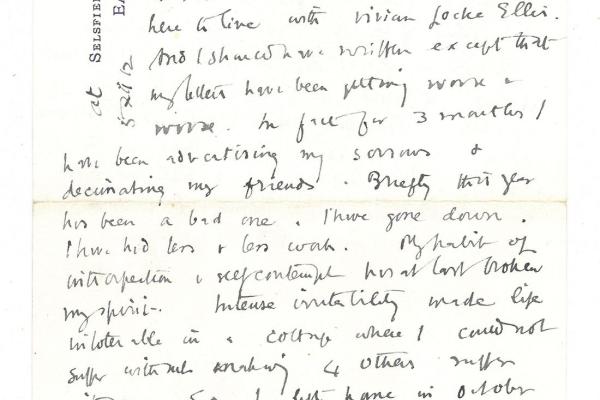 at SELSFIE
EA
5 xii 12
here to live with Vivian Locke Ellis.
And I should have written except that
my letters have been getting worse &
worse. In fact for 3 months I
have been advertising my sorrows &
decimating my friends. Briefly this year
has been a bad one. I have gone down.
I have had less & less work. My habit of
introspection & self contempt has at last broken
my spirit. Intense irritability made life
intolerable in a cottage where I could not
suffer without making 4 others suffer
I left home in October